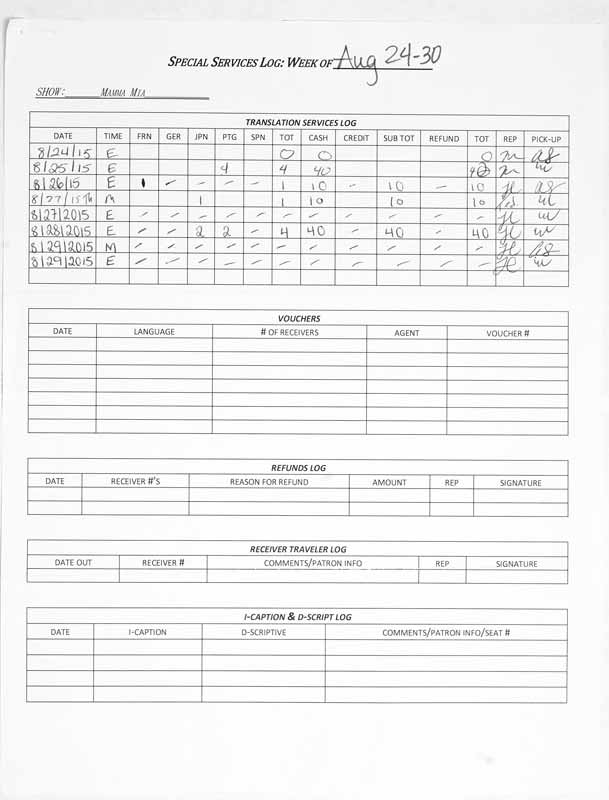 SPECIAL SERVICES LOG: WEEK OF Aug 24-30
SHOW: MAMMA MIA
TRANSLATION SERVICES LOG
DATE TIME FRN GER JPN PTG SPN TOT CASH CREDIT SUB TOT REFUND TOT REP PICK-UP
8/24/15 E 0 0 0 as
8/25/15 E 4 4 40 40
8/26/15 E 1 - - - - 1 10 - 10 - 10 JC as
8/27/15 Th M 1 1 10 10 10
8/27/2015 E - - - - - - - - - - - JC
8/28/2015 E - - 2 2 - 4 40 - 40 - 40 JC
8/29/2015 M - - - - - - - - - - - JC as
8/29/2015 E - - - - - - - - - - - JC
VOUCHERS
DATE LANGUAGE # OF RECEIVERS AGENT VOUCHER #
REFUNDS LOG
DATE RECEIVER #'S REASON FOR REFUND AMOUNT REP SIGNATURE
RECEIVER TRAVELER LOG
DATE OUT RECEIVER # COMMENTS/PATRON INFO REP SIGNATURE
I-CAPTION & D-SCRIPT LOG
DATE I-CAPTION D-SCRIPTIVE COMMENTS/PATRON INFO/SEAT #